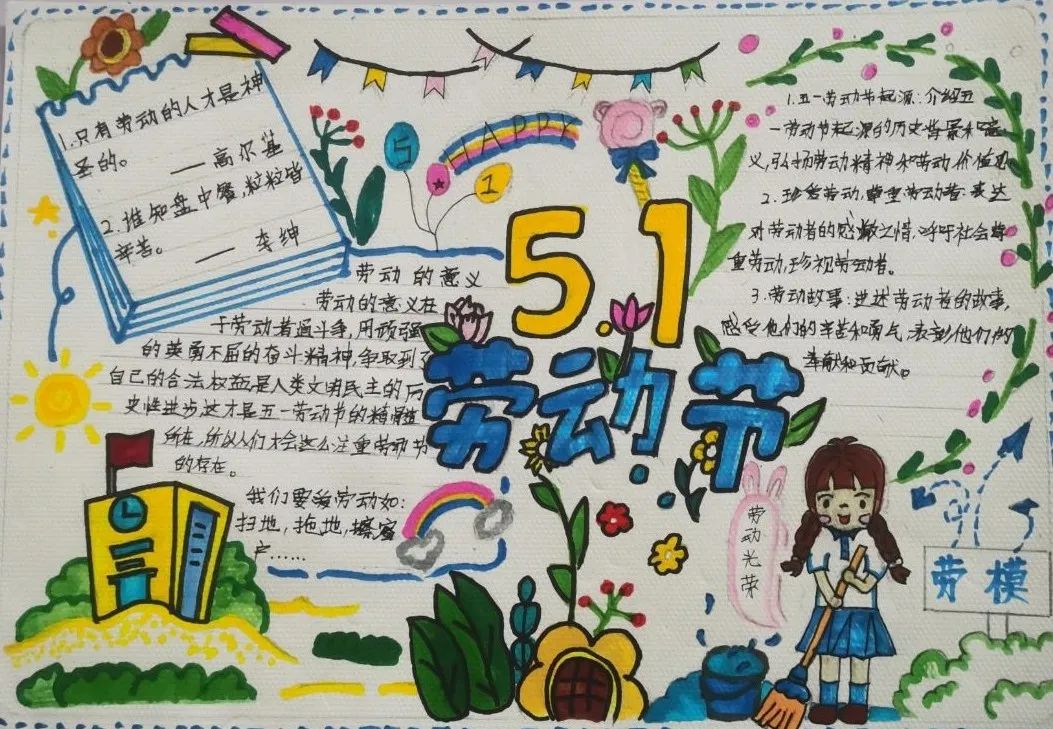 1.只有劳动的人才是神
圣的。
——高尔基
2.谁知盘中餐,粒粒皆
辛苦。
——李绅
HAPPY
5
1
5.1
劳动节
劳动的意义
劳动的意义在
于劳动者通斗争,用顽强
的英勇不屈的奋斗精神,争取到了
自己的合法权益,是人类文明民主的历
史性进步,这才是五一劳动节的精髓
所在,所以人们才会这么注重劳动节
的存在。
我们要爱劳动如:
扫地,拖地,擦窗
户……
1.五一劳动节起源:介绍五
一劳动节起源的历史背景和意
义,弘扬劳动精神和劳动价值观
2.珍爱劳动,尊重劳动者:表达
对劳动者的感激之情,呼吁社会尊
重劳动,珍视劳动者。
3.劳动故事:讲述劳动者的故事,
感受他们的辛苦和勇气,表彰他们的
奉献和贡献。
劳动光荣
劳模